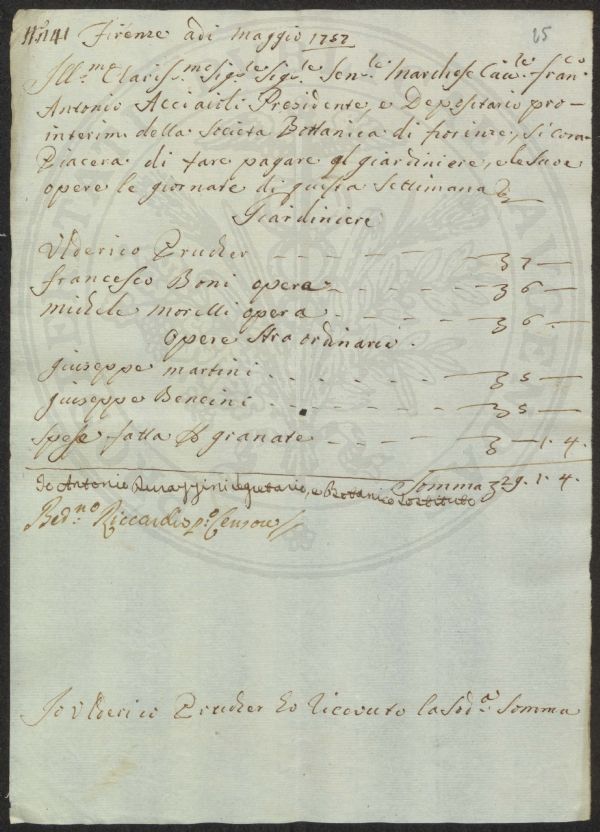 N.º 141 Firenze adi maggio 1757 25
Ill:mo Clariss:mo Sig:re Sig:re Sen:re Marchese Cav:re Fran:co
Antonio Acciaioli Presidente e Depositario pro=
interim della Societa Bottanica di fiorenze, si com=
Piacera di fare pagare al giardiniere, e le sue
opere le giornate di questa Settimana
Giardiniere
Ulderico Prucher - - - - - - 7 —
francesco Boni opera - - - - - 6 —
michele morelli opera - - - - 6 —
opere straordinarie.
giuseppe martini . . . - - - - 5 —
giuseppe Bencini . . - - - - 5 —
spese fatta p granate - - - - — 1. 4.
Somma 29. 1. 4.
Io Antonio segretario, e Botanico Sostituto
Bed:no Riccardi p:o Censore
Io Ulderico Prucher ho riceuto la Sod:a Somma